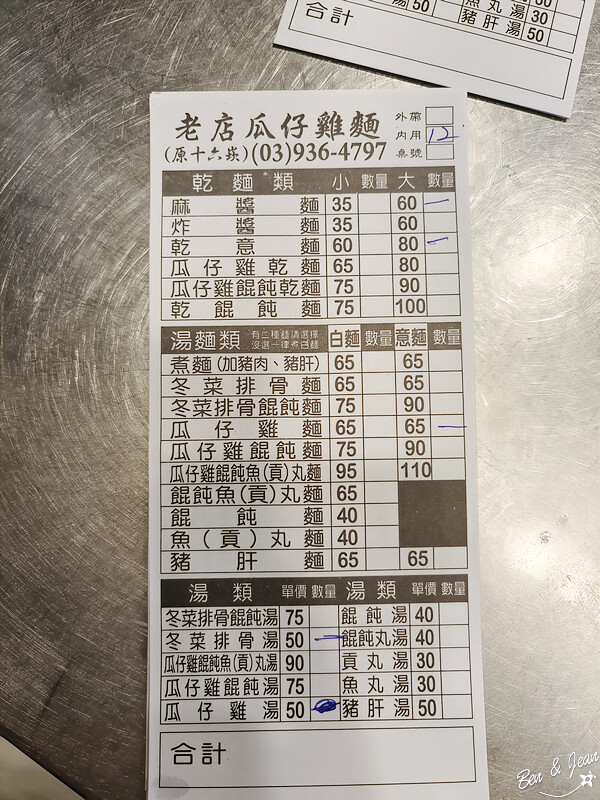 湯 50 魚丸湯 30
合計 豬肝湯 50
老店瓜仔雞麵
(原十六崁)(03)936-4797
外帶
內用 12
桌號
乾麵類 小 數量 大 數量
麻醬麵 35 60 一
炸醬麵 35 60
乾意麵 60 80 一
瓜仔雞乾麵 65 80
瓜仔雞餛飩乾麵 75 90
乾餛飩麵 75 100
湯麵類 有二種麵請選擇 沒選一律煮白麵 白麵 數量 意麵 數量
煮麵(加豬肉、豬肝) 65 65
冬菜排骨麵 65 65
冬菜排骨餛飩麵 75 90
瓜仔雞麵 65 65 一
瓜仔雞餛飩麵 75 90
瓜仔雞餛飩魚(貢)丸麵 95 110
餛飩魚(貢)丸麵 65
餛飩麵 40
魚(貢)丸麵 40
豬肝麵 65 65
湯類 單價 數量 湯類 單價 數量
冬菜排骨餛飩湯 75 餛飩湯 40
冬菜排骨湯 50 一 餛飩丸湯 40
瓜仔雞餛飩魚(貢)丸湯 90 貢丸湯 30
瓜仔雞餛飩湯 75 魚丸湯 30
瓜仔雞湯 50 豬肝湯 50
合計
Ben & Jean